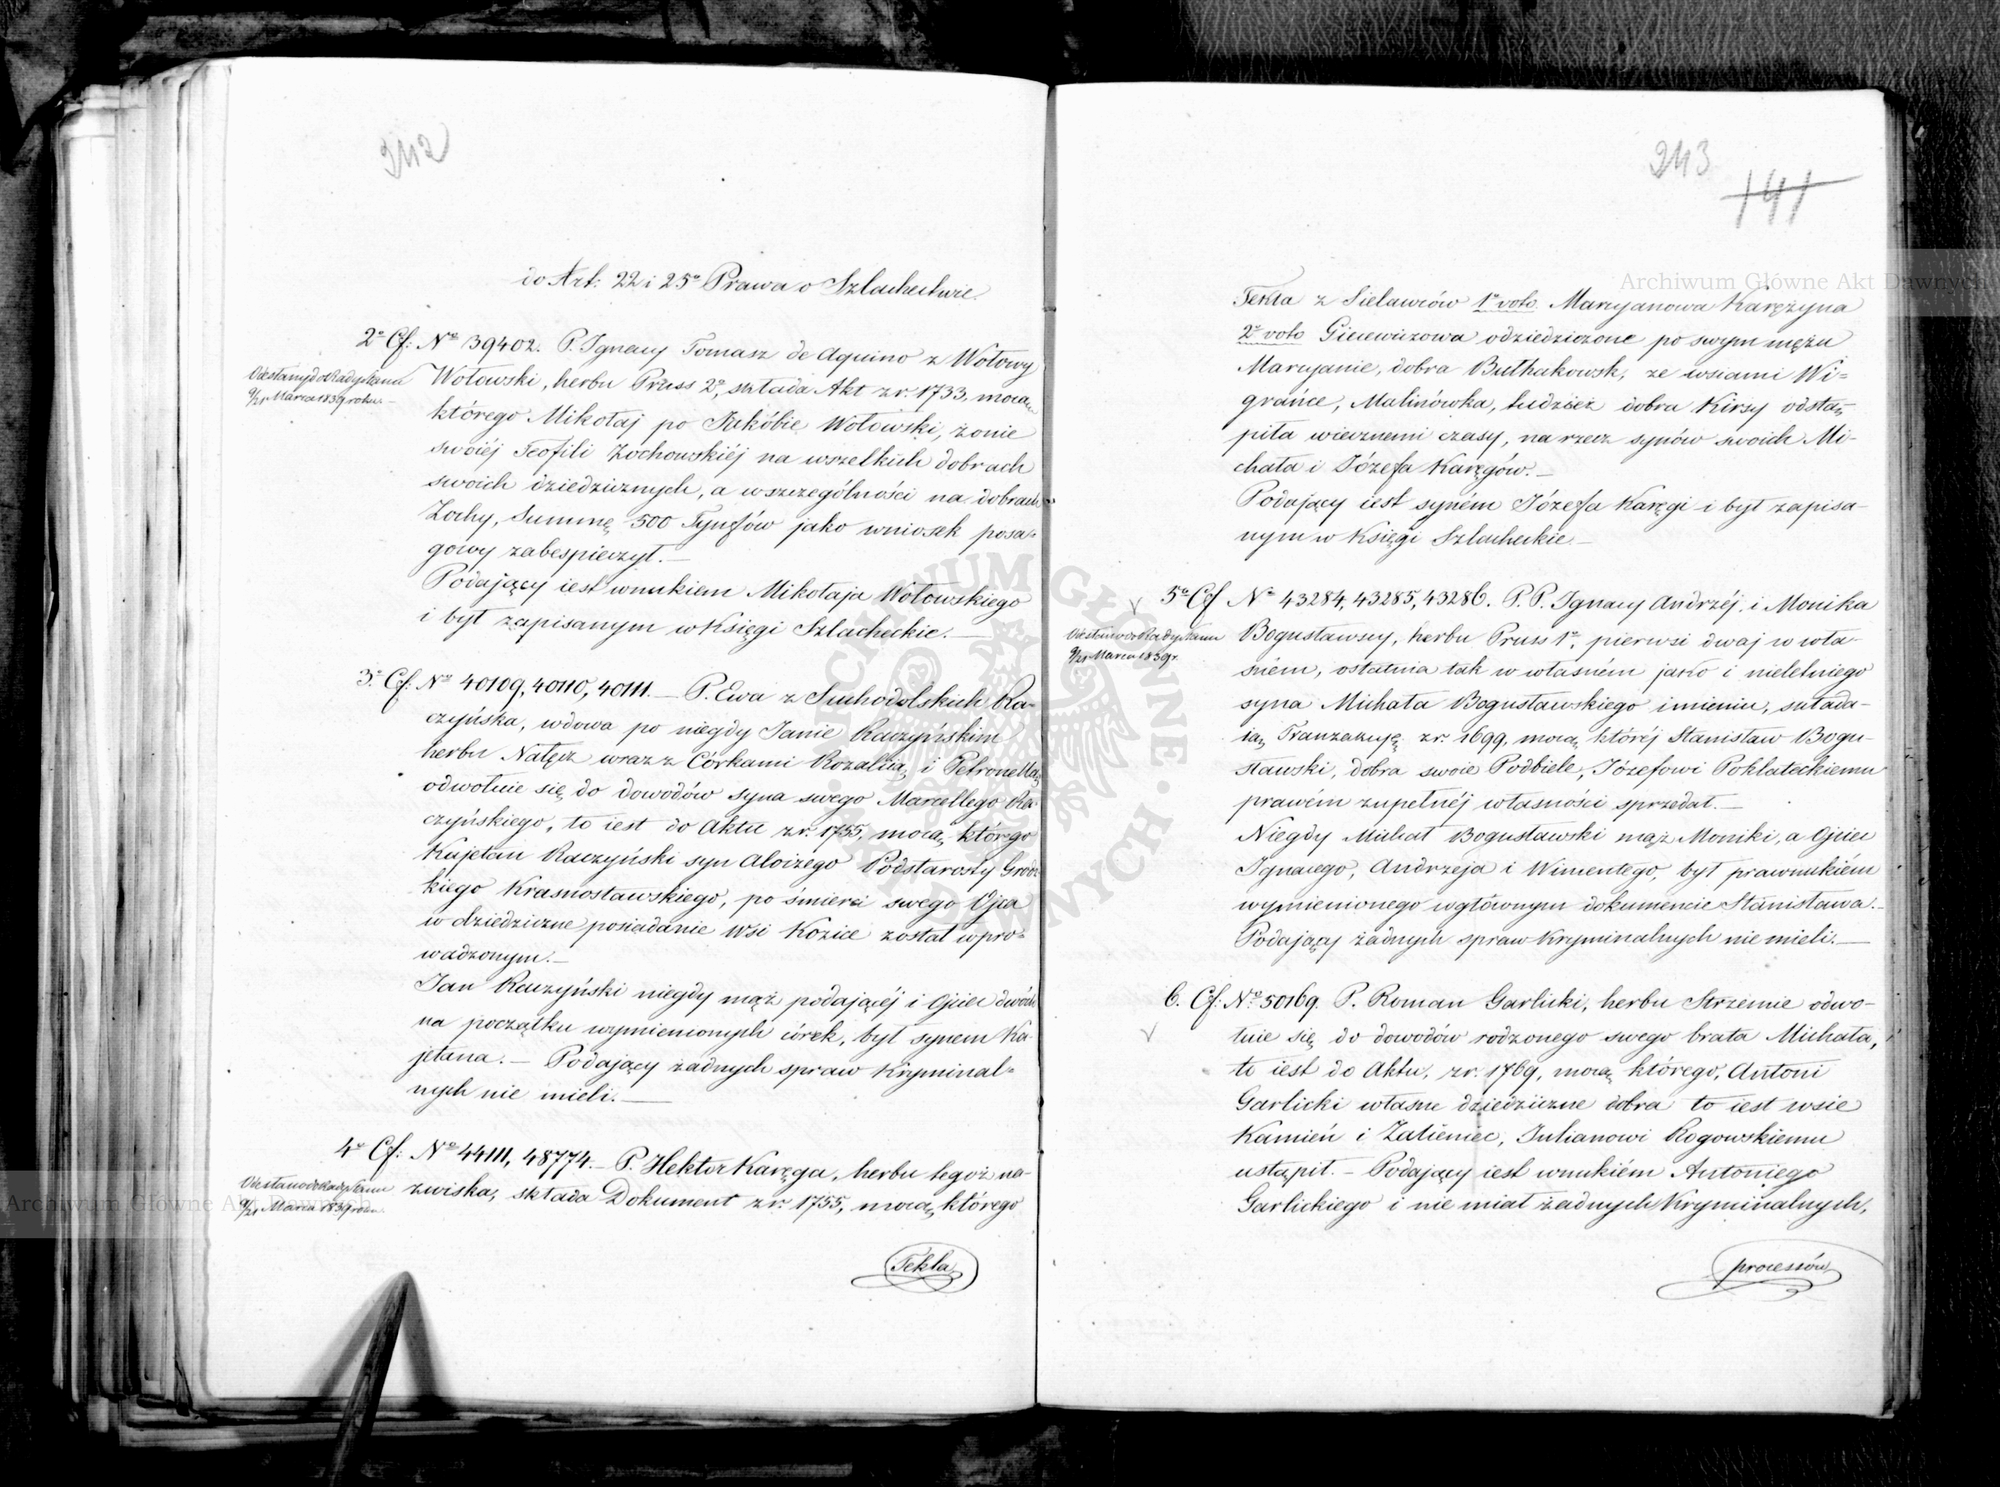 242
do Art: 22 i 25º Prawa o Szlachectwie.
2º Cf: Nº 39402. P. Ignacy Tomasz de Aquino z Wołowy
Odesłany do Rady Stanu
9/21 Marca 1839 roku.
Wołowski, herbu Pruss 2º, składa Akt z r. 1733, mocą
którego Mikołaj po Jakóbie Wołowski, żonie
swoiéj Teofili Żochowskiéj na wszelkich dobrach
swoich dziedzicznych, a w szczególności na dobrach
Żochy, Summę 500 Tynfów jako wniosek posa-
gowy zabespieczył.—
Podający iest wnukiem Mikołaja Wołowskiego
i był zapisanym w Księgi Szlacheckie.—
3º Cf: Nº 40109, 40110, 40111.— P. Ewa z Suchodolskich Ra-
czyńska, wdowa po niegdy Janie Raczyńskim
herbu Nałęcz wraz z Córkami Rozalią, i Petronellą,
odwołuie się do dowodów syna swego Marcellego Ra-
czyńskiego, to iest do Aktu z r. 1755, mocą, którego
Kajetan Raczyński syn Aloizego Podstarosty Grodz-
kiego Krasnostawskiego, po śmierci swego Ojca
w dziedziczne posiadanie wsi Kozice został wpro-
wadzonym.—
Jan Raczyński niegdy mąż podającéj i Ojciec dwóch
na początku wymienionych córek, był synem Ka-
jetana.— Podający żadnych spraw Kryminal-
nych nie mieli.—
4º Cf: Nº 44111, 48774.— P. Hektor Karęga, herbu tegoż na-
Odesłano do Rady Stanu
9/21 Marca 1839 roku.
zwiska, składa Dokument z r. 1755, mocą, którego
Tekla
243
141
Tekla z Sielawców 1º voto Marcyanowa Karężyna
2º voto Giecewiczowa odziedziczone po swym mężu
Marcyanie, dobra Bułhakowsk, ze wsiami Wi-
grańce, Malinówka, tudzież dobra Kirsy odstą-
piła wiecznemi czasy, na rzecz synów swoich Mi-
chała i Józefa Karęgów.—
Podający iest syném Józefa Karęgi i był zapisa-
nym w Księgi Szlacheckie.—
5º Cf Nº 43284, 43285, 43286. P.P. Ignacy Andrzéj, i Monika
Odesłano do Rady Stanu
9/21 Marca 1839 r.
Bogusławscy, herbu Pruss 1º, pierwsi dwaj w wła-
sném, ostatnia tak w własném jako i nieletniego
syna Michała Bogusławskiego imieniu, składa-
ią, Tranzakcyę z r. 1699, mocą, któréj Stanisław Bogu-
sławski, dobra swoie Podbiele, Józefowi Pokłateckiemu
prawém zupełnéj własności sprzedał.—
Niegdy Michał Bogusławski mąż Moniki, a Ojciec
Ignacego, Andrzeja i Wincentego, był prawnukiém
wymienionego w głównym dokumencie Stanisława.—
Podający żadnych spraw Kryminalnych nie mieli.—
6. Cf: Nº 50169. P. Roman Garlicki, herbu Strzemie odwo-
łuie się do dowodów rodzonego swego brata Michała,
to iest do Aktu, z r. 1769, mocą, którego, Antoni
Garlicki własne dziedziczne dobra to iest wsie
Kamień i Zalieniec, Julianowi Rogowskiemu
ustąpił.— Podający iest wnukiém Antoniego
Garlickiego i nie miał żadnych Kryminalnych,
processów
Archiwum Główne Akt Dawnych
Archiwum Główne Akt Dawnych
ARCHIWUM GŁÓWNE AKT DAWNYCH